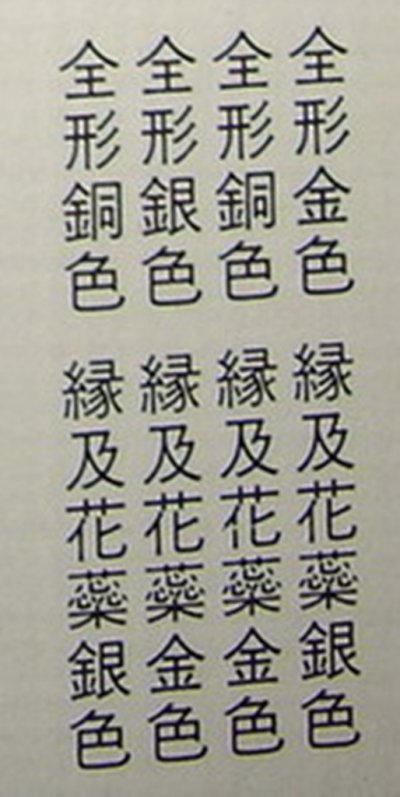 全形金色 縁及花蘂銀色
全形銅色 縁及花蘂金色
全形銀色 縁及花蘂金色
全形銅色 縁及花蘂銀色